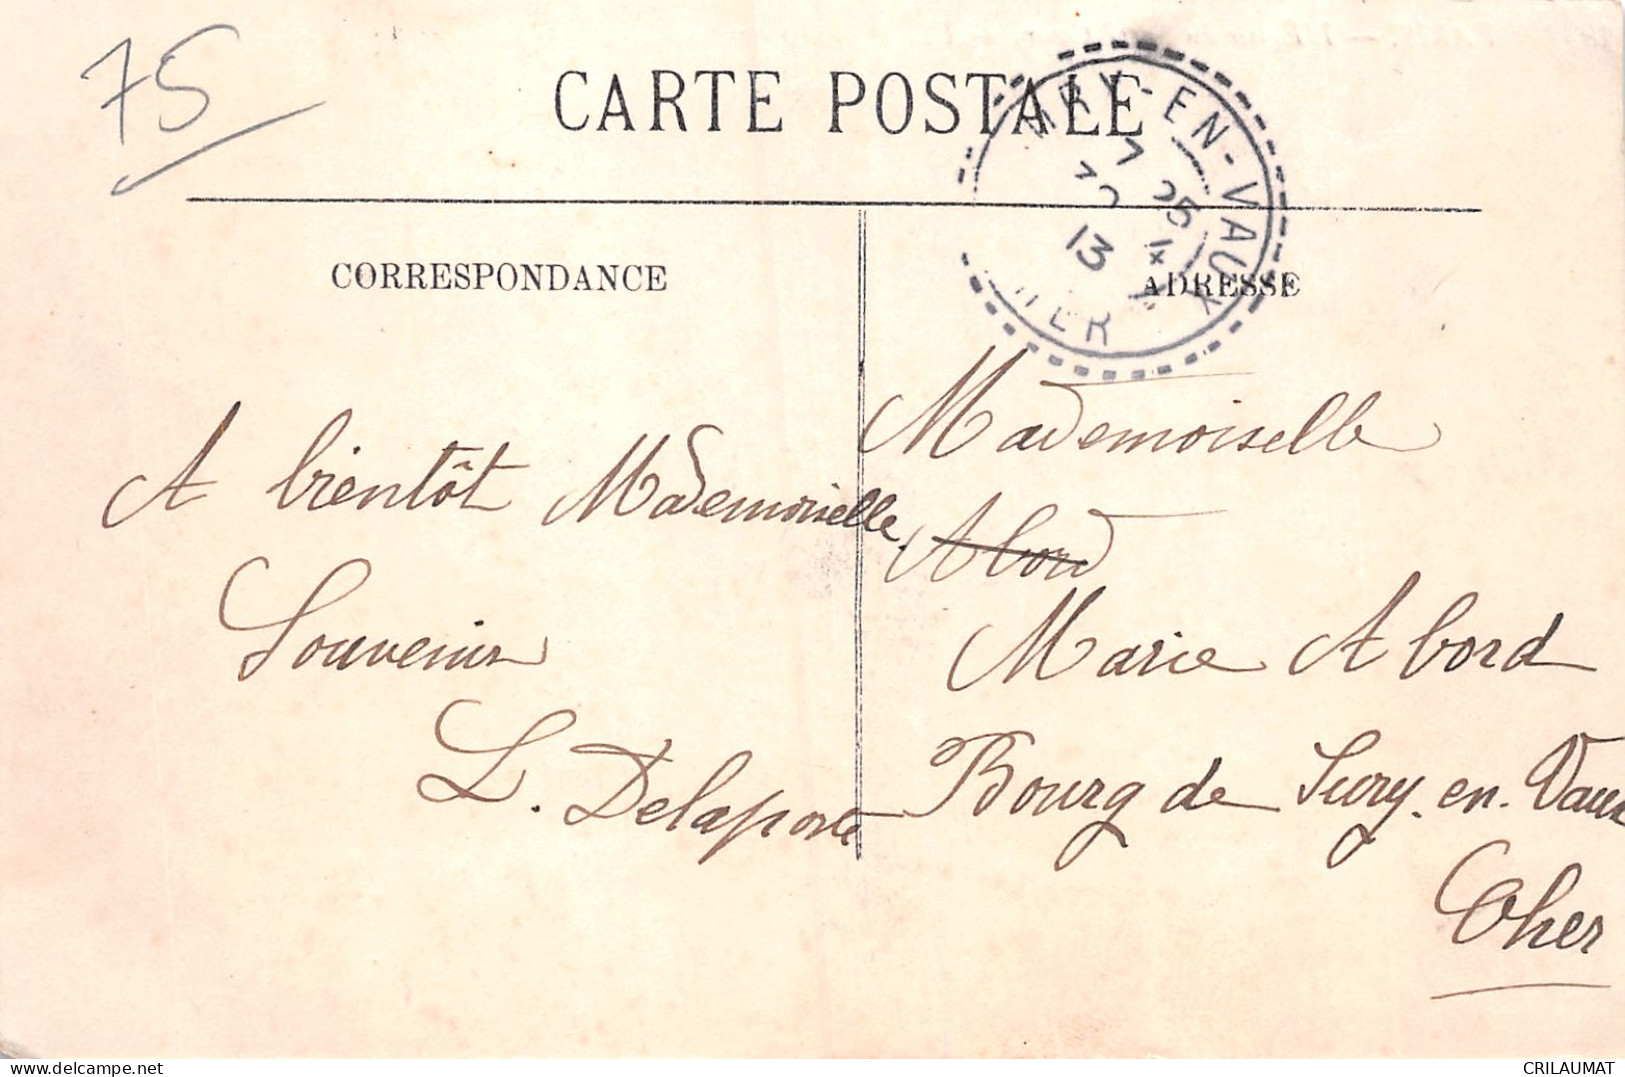 75
CARTE POSTALE
CORRESPONDANCE
ADRESSE
URY-EN-VAUX
7
25
13
HER
A bientôt Mademoiselle.
Souvenir
L. Delaporte
Mademoiselle
Abord
Marie Abord
Bourg de Sury-en-Vaux
Cher
delcampe.net
CRILAUMAT